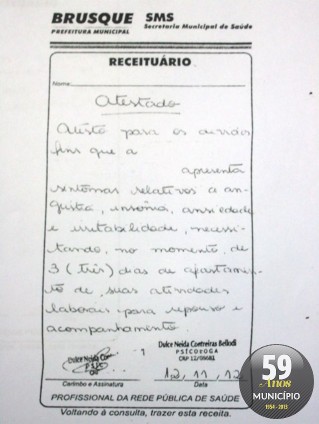 BRUSQUE SMS
PREFEITURA MUNICIPAL Secretaria Municipal de Saúde
RECEITUÁRIO
Nome
Atestado
Atesto para os devidos
fins que a
apresenta
sintomas relativos a an-
gústia, insônia, ansiedade
e irritabilidade, necessi-
tando, no momento, de
3 (três) dias de afastamen-
to de suas atividades
laborais para repouso e
acompanhamento.
Dulce Neida Contreiras Bellodi
PSICÓLOGA
CRP 12/09681
Dulce Neida
12, 11, 12
Carimbo e Assinatura Data
PROFISSIONAL DA REDE PÚBLICA DE SAÚDE
Voltando à consulta, trazer esta receita.
59
Anos
MUNICÍPIO
1954 - 2013